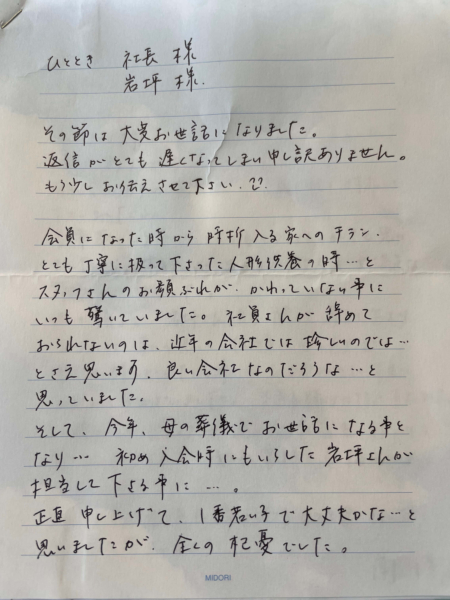 ひととき 社長 様
岩坪 様.
その節は 大変お世話になりました。
返信がとても 遅くなってしまい 申し訳ありません。
もう少し お伝えさせて下さい.
会員になった時から 時折 入る 家への チラシ.
とても 丁寧に扱って下さった 人形供養の時…と
スタッフさんの お顔ぶれが、かわっていない事に
いつも 驚いていました。社員さんが 辞めて
おられないのは、近年の会社では 珍しいのでは…
とさえ思います. 良い会社なのだろうな…と
思っていました。
そして、今年、母の葬儀で お世話になる事と
なり… 初め 入会時にもいらした 岩坪さんが
担当して下さる事に…。
正直 申し上げて、1番若い子で大丈夫かな…と
思いましたが、全くの 杞憂でした。
MIDORI